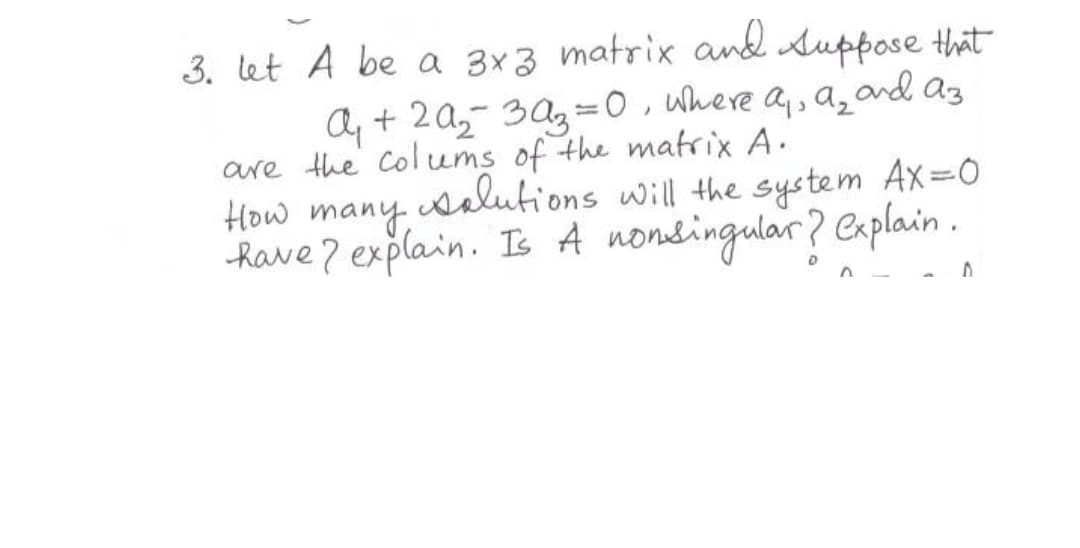 3. let A be a 3×3 matrix and suppose that
a₁ + 2a₂ - 3a₃ = 0, where a₁, a₂ and a₃
are the colums of the matrix A.
How many solutions will the system AX=0
have? explain. Is A nonsingular? Explain.